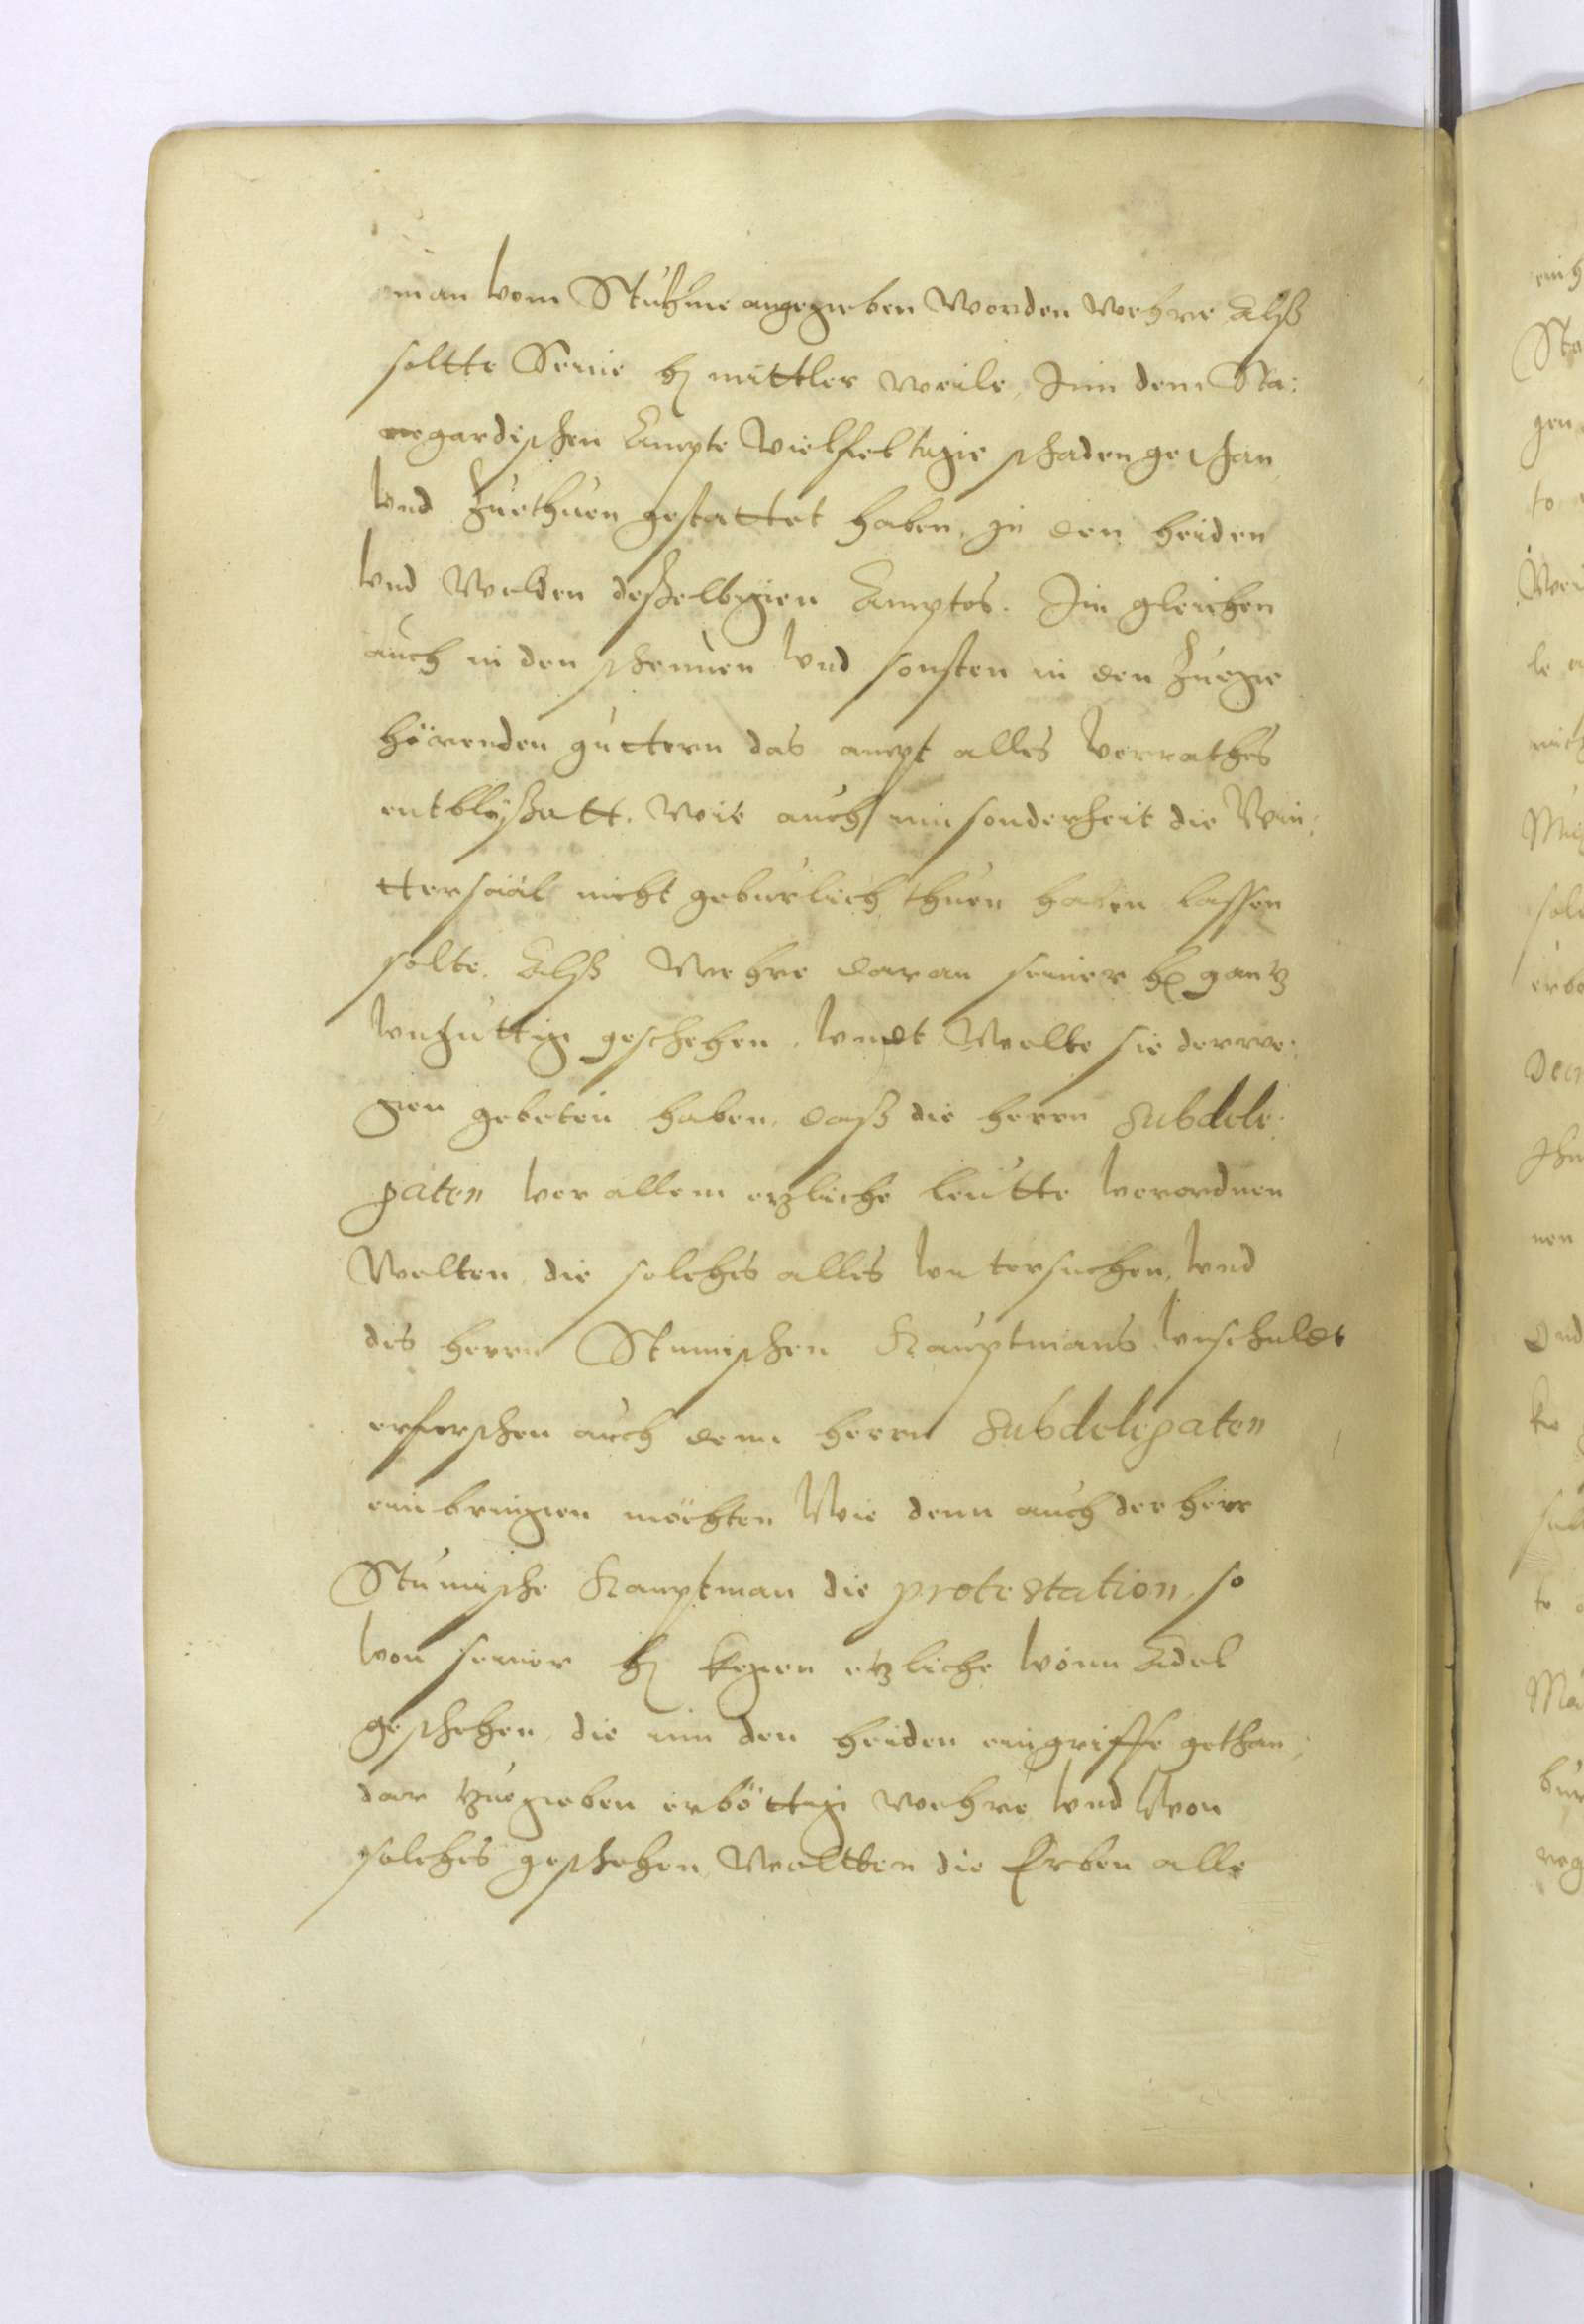 man vom Stuhme angegieben worden wehre Alß
soltte Seine h mittler weile, Jnn dem Sta:
regardischen Ampte vielfeltigie schaden gethan
vnd Zuethuen gestattet haben, in den heiden
vnd Welden deßelbigien Amptes. Jm gleichen
auch in den scheunen vnd sonsten in den Zuegie
hörenden guttern das ampt alles vorrathes
entblößatt. wie auch inn sonderheit die Win:
ttersaäl nicht geburlich thuen haben lassen
solte. Alß Wehre daran seiner h gantz
vnguttig geschehen. vnndt Wolte sie derwe:
gien gebeten haben, daß die herrn Subdele:
gaten vor allem etzliche leutte verordnen
Wolten, die solches alles vntersuchen, vnd
des herrn Stumischen Hauptmans vnschuldt
erforschen auch dem herrn Subdelegaten
einbringien möchten Wie denn auch der herr
Stumische Hauptman die protestation, so
von seiner h kegien etzliche vonn Adel
geschehen, die inn den heiden eingriffe gethan,
dar zuegieben erböttig wehre vnd Wen
solches geschehen Woltten die Erben alle

einh
Sta
gen
to
Wei
le
nich
Mug
sol
erbo
Decr
Jhn
nen
Vnd
ke
sub
te
Ma
bur
reg